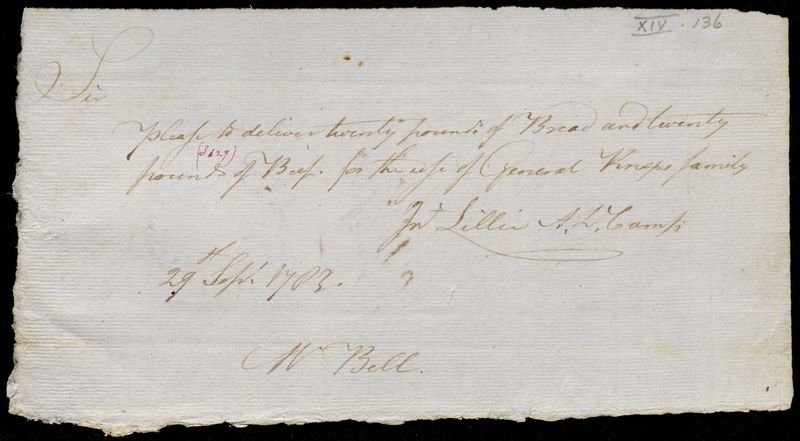 XIV. 136
Sir
please to deliver twenty pounds of Bread and twenty
(3629)
pounds of Beef. for the use of General Knox's family
Jnº Lillie A. D. Camp
29th Sepr 1783.
Mr Bell.